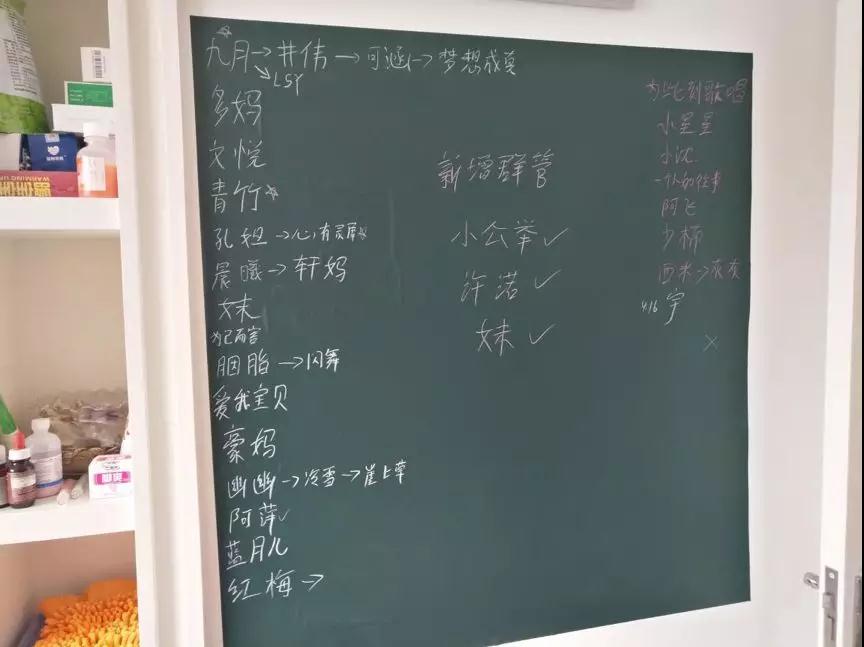 九月→井伟→可涵→梦想成真
→LSY
多妈
文悦
青竹
孔妲→心有灵犀
晨曦→轩妈
妹
为己而容
胭脂→闪舞
爱我宝贝
豪妈
幽幽→冷雪→崖上草
阿萍✓
蓝月儿
红梅→
新增群管
小公举✓
许诺✓
妹✓
为此刻歌唱
小星星
小沈
一个人的往事
阿飞
少楠
西米→灰灰
4.16 宇
×
WARMING UP